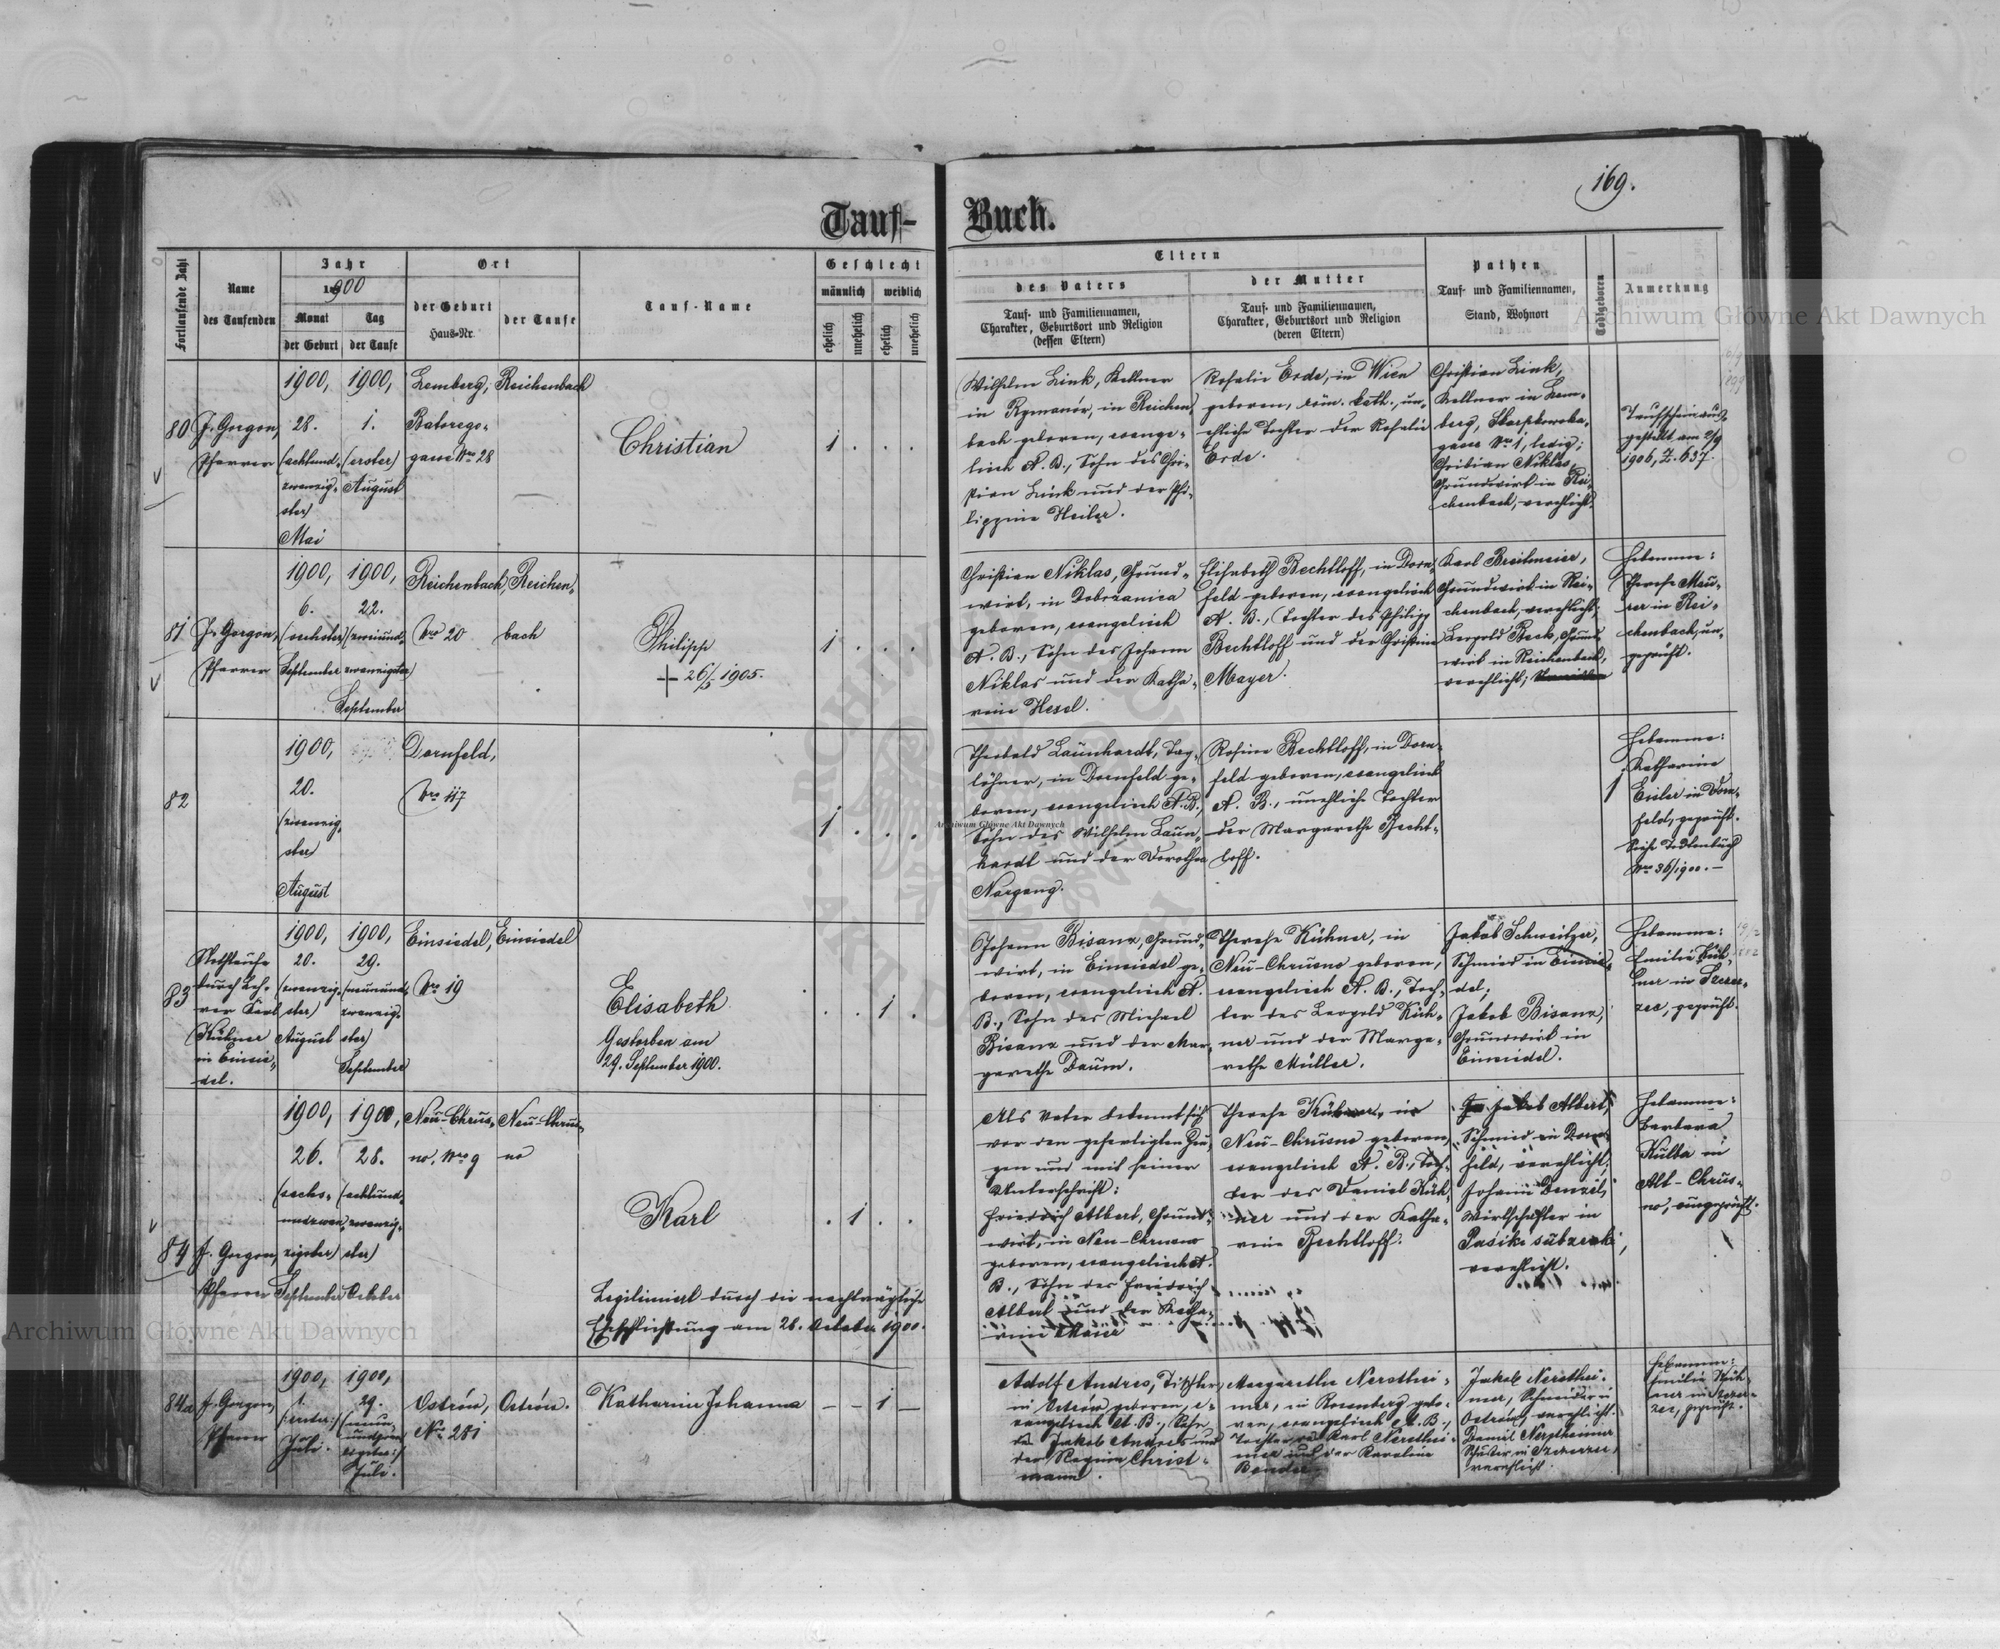 169.
Tauf-Buch.
Fortlaufende Zahl
Name
des Taufenden
Jahr
1900
Monat
der Geburt
Tag
der Taufe
Ort
der Geburt
Haus-Nr.
der Taufe
Tauf-Name
Geschlecht
männlich
weiblich
ehelich
unehelich
ehelich
unehelich
Eltern
des Vaters
Tauf- und Familiennamen,
Charakter, Geburtsort und Religion
(dessen Eltern)
der Mutter
Tauf- und Familiennamen,
Charakter, Geburtsort und Religion
(deren Eltern)
Pathen
Tauf- und Familiennamen,
Stand, Wohnort
Todtgeboren
Anmerkung
80
J. Gorgon,
Pfarrer
1900,
28.
(achtund-
zwanzig-
ster)
Mai
1900,
1.
(erster)
August
Lemberg,
Batorego-
gasse Nro 28
Reichenbach
Christian
1 . . .
Wilhelm Link, Kellner
in Rymanów, in Reichen-
bach geboren, evange-
lisch A. B., Sohn des Chri-
stian Link und der Phi-
lippine Heiler.
Rosalie Erde, in Wien
geboren, röm. kath., un-
ehliche Tochter der Rosalie
Erde.
Christian Link,
Kellner in Lem-
berg,
gasse Nro 1, ledig;
Christian Niklas,
Grundwirt in Rei-
chenbach, verehlicht.
Taufschein aus-
gestellt am 2/9
1906, Z. 637.
81
J. Gorgon,
Pfarrer
1900,
6.
(sechster)
September
1900,
22.
(zweiund-
zwanzigster)
September
Reichenbach
Nro 20
Reichen-
bach
Philipp
+ 26/5 1905.
1 . . .
Christian Niklas, Grund-
wirt, in Dobrzanica
geboren, evangelisch
A. B., Sohn des Johann
Niklas und der Katha-
rina Hesel.
Elisabeth Bechtloff, in Dorn-
feld geboren, evangelisch
A. B., Tochter des Philipp
Bechtloff und der Christine
Mayer.
Karl Breitmeier,
Grundwirt in Rei-
chenbach, verehlicht;
Leopold Beck, Grund-
wirt in Reichenbach,
verehlicht;
Hebamme:
Therese Mau-
rer in Rei-
chenbach, un-
geprüft.
82
1900,
20.
(zwanzig-
ster)
August
Dornfeld,
Nro 117
1 . . .
Theobald Launhardt, Tag-
löhner, in Dornfeld ge-
boren, evangelisch A. B.,
Sohn des Wilhelm Laun-
hardt und der Dorothea
Nargang.
Rosina Bechtloff, in Dorn-
feld geboren, evangelisch
A. B., unehliche Tochter
der Margarethe Becht-
loff.
1
Hebamme:
Katharine
Eisler in Dorn-
feld, geprüft.
Siehe Todtenbuch
Nro 36/1900. —
83
Nothtaufe
durch Leh-
rer Karl
Kühner
in Einsie-
del.
1900,
20.
(zwanzig-
ster)
August
1900,
29.
(neunund-
zwanzig-
ster)
September
Einsiedel,
Nro 19
Einsiedel
Elisabeth
Gestorben am
29. September 1900.
. . 1 .
Johann Bisanz, Grund-
wirt, in Einsiedel ge-
boren, evangelisch A.
B., Sohn des Michael
Bisanz und der Mar-
garethe Daum.
Therese Kühner, in
Neu-Chrusno geboren,
evangelisch A. B., Toch-
ter des Leopold Küh-
ner und der Marga-
rethe Müller.
Jakob Schweitzer,
Schmied in Einsie-
del;
Jakob Bisanz,
Grundwirt in
Einsiedel.
Hebamme:
Emilie Küh-
ner in Szczer-
zec, geprüft.
84
J. Gorgon,
Pfarrer
1900,
26.
(sechs-
undzwan-
zigster)
September
1900,
28.
(achtund-
zwanzig-
ster)
October
Neu-Chrus-
no, Nro 9
Neu-Chrus-
no
Karl
Legitimirt durch die nachträgliche
Ehschließung am 28. October 1900.
. 1 . .
Als Vater bekennt sich
vor den gefertigten Zeu-
gen und mit seiner
Unterschrift:
Friedrich Albert, Grund-
wirt, in Neu-Chrusno
geboren, evangelisch A.
B., Sohn des Friedrich
Albert und der Katha-
rina
Therese Kühner, in
Neu-Chrusno geboren,
evangelisch A. B., Toch-
ter des Daniel Küh-
ner und der Katha-
rina Bechtloff.
Jakob Albert,
Schmied in Dorn-
feld, verehlicht;
Johann Denzel,
Wirtschafter in
Pasiki
verehlicht.
Hebamme:
Barbara
Kulba in
Alt-Chrus-
no, ungeprüft.
84a
J. Gorgon,
Pfarrer
1900,
1.
(erster)
Juli.
1900,
29.
Juli.
Ostrów,
Nro 281
Ostrów.
Katharina Johanna
— — 1 —
Adolf Andres, Tischler,
in Ostrów geboren, e-
vangelisch A. B., Sohn
des Jakob Andres und
der Regina Christ-
mann.
Margaretha Nerothei-
mer, in Rosenberg gebo-
ren, evangelisch A. B.,
Tochter des Karl Nerothei-
mer und der Karoline
Bender.
Jakob Nerothei-
mer, Schneider in
Ostrów, verehlicht.
Daniel Nerotheimer
Schuster in Szczerzec,
verehlicht.
Hebamme:
Emilie Küh-
ner in Szczer-
zec, geprüft.
Archiwum Główne Akt Dawnych
Archiwum Główne Akt Dawnych
Archiwum Główne Akt Dawnych